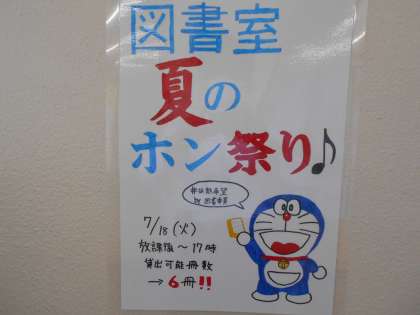 図書室
夏の
ホン祭り♪
by 図書委員
7/18(火)
放課後〜17時
貸出可能冊数
→6冊!!